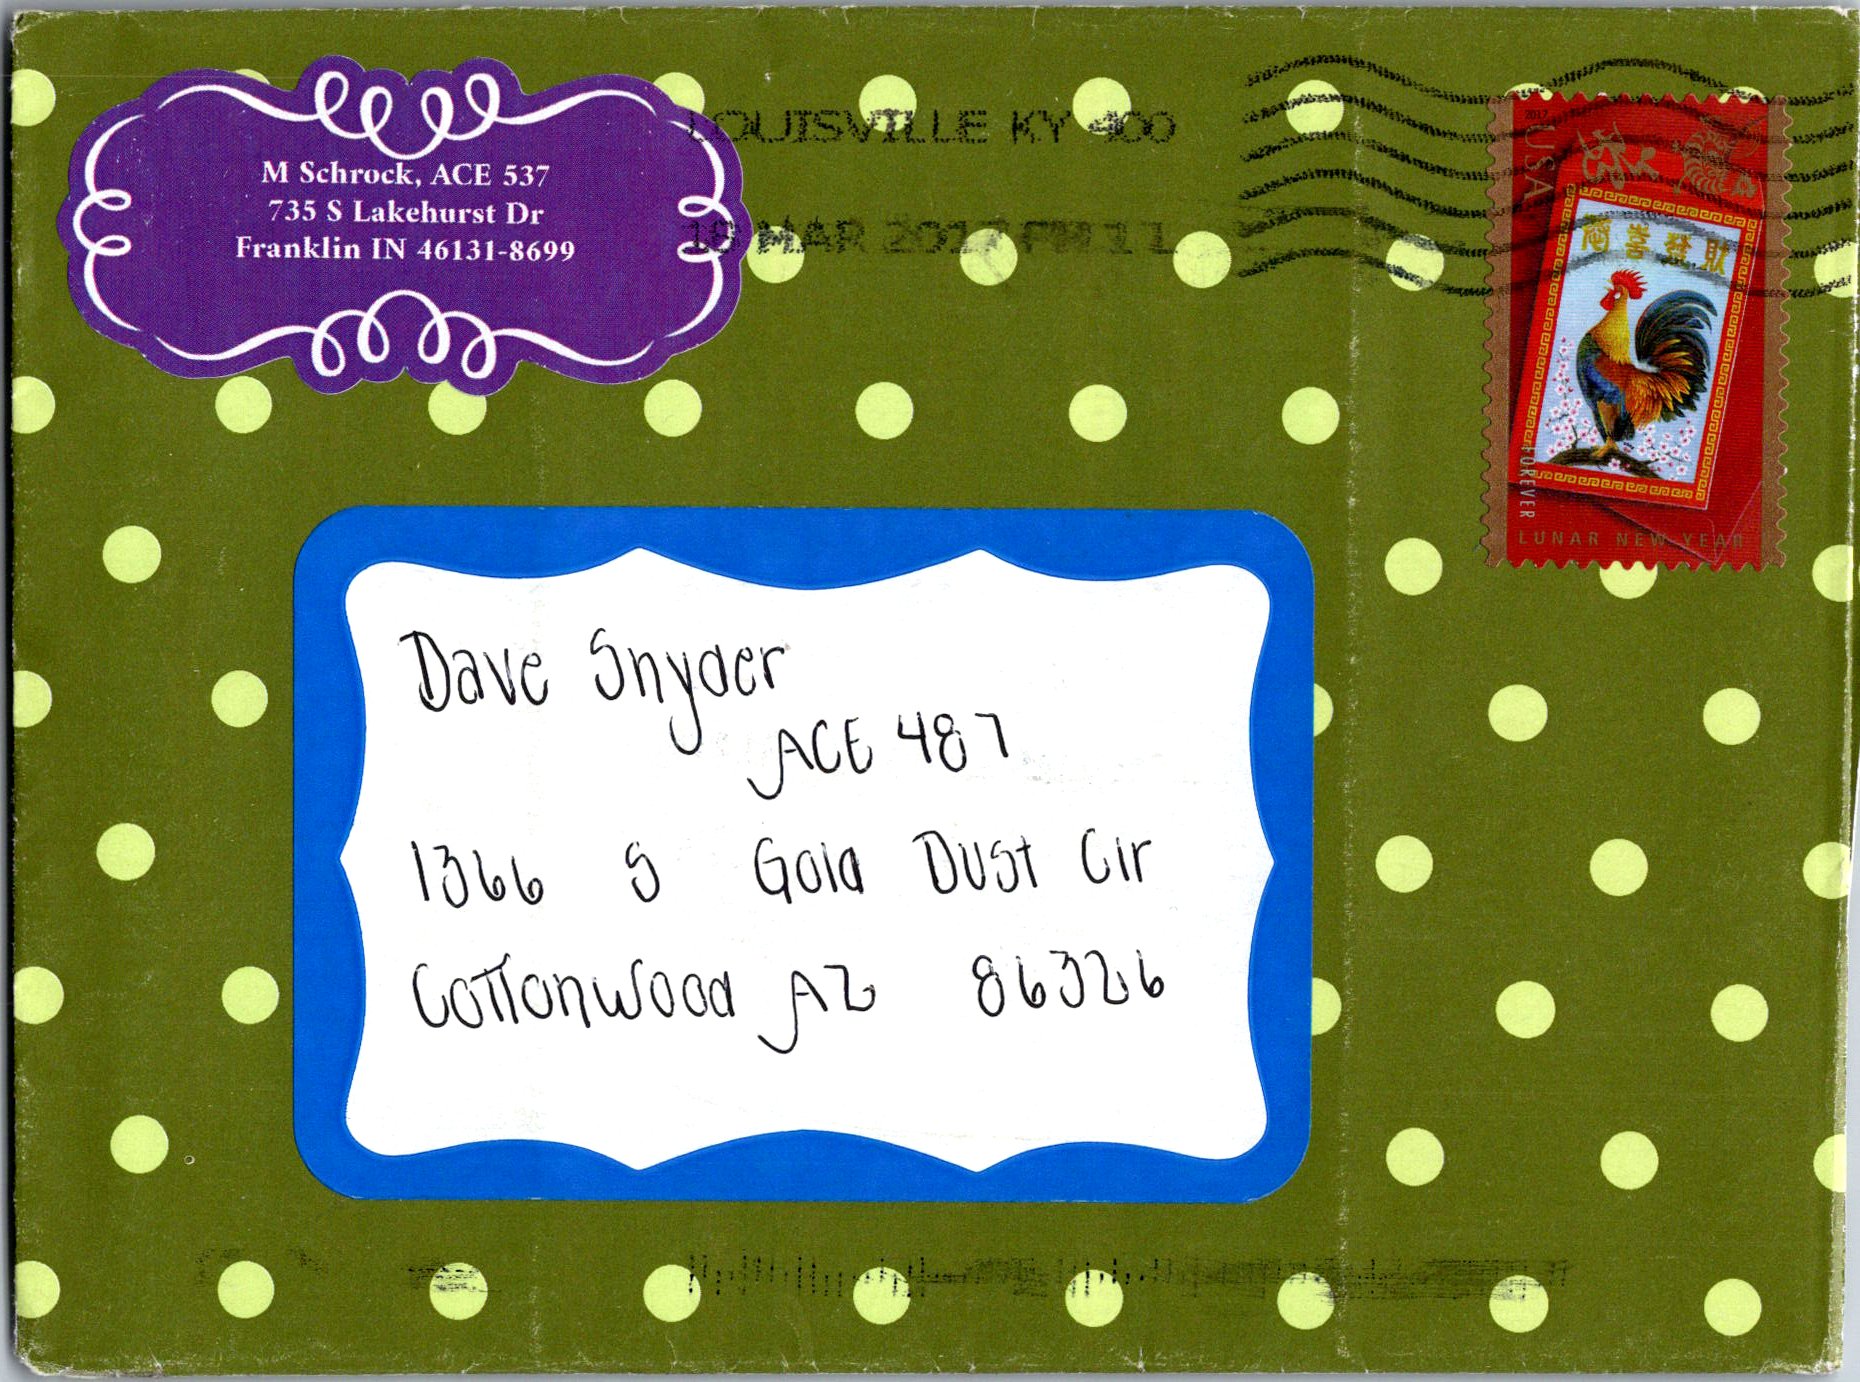 M Schrock, ACE 537
735 S Lakehurst Dr
Franklin IN 46131-8699
LOUISVILLE KY 400
MAR 2017 PM 11
2017
USA
恭喜發財
FOREVER
LUNAR NEW YEAR
Dave Snyder
ACE 487
1366 S Gold Dust Cir
Cottonwood AZ 86326